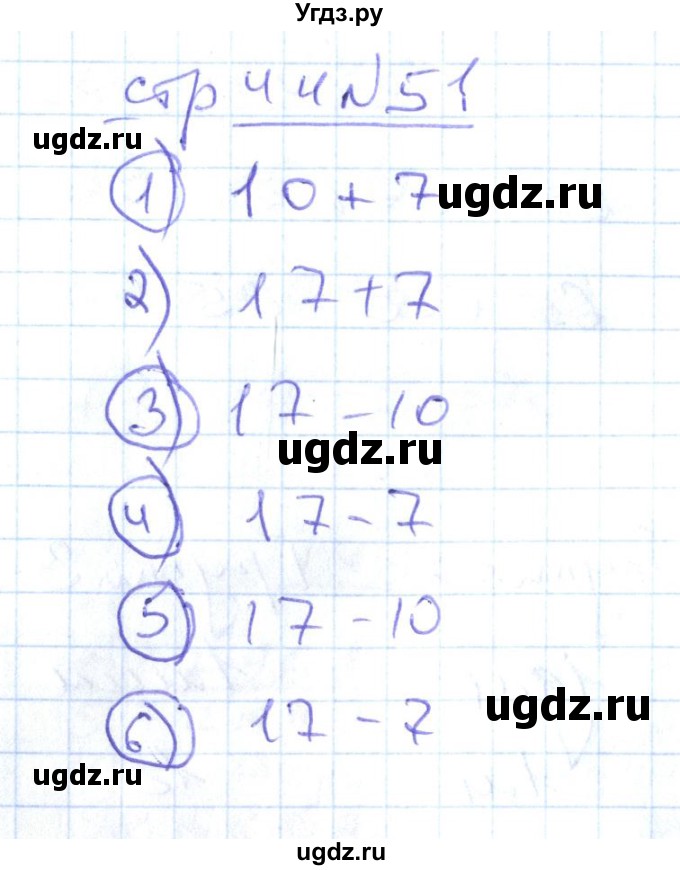 Угдз.ру
стр 44 N 51
ugdz.ru
1) 10 + 7
ugdz.ru
2) 17 + 7
3) 17 - 10
ugdz.ru
4) 17 - 7
5) 17 - 10
6) 17 - 7
ugdz.ru
ugdz.ru
ugdz.ru